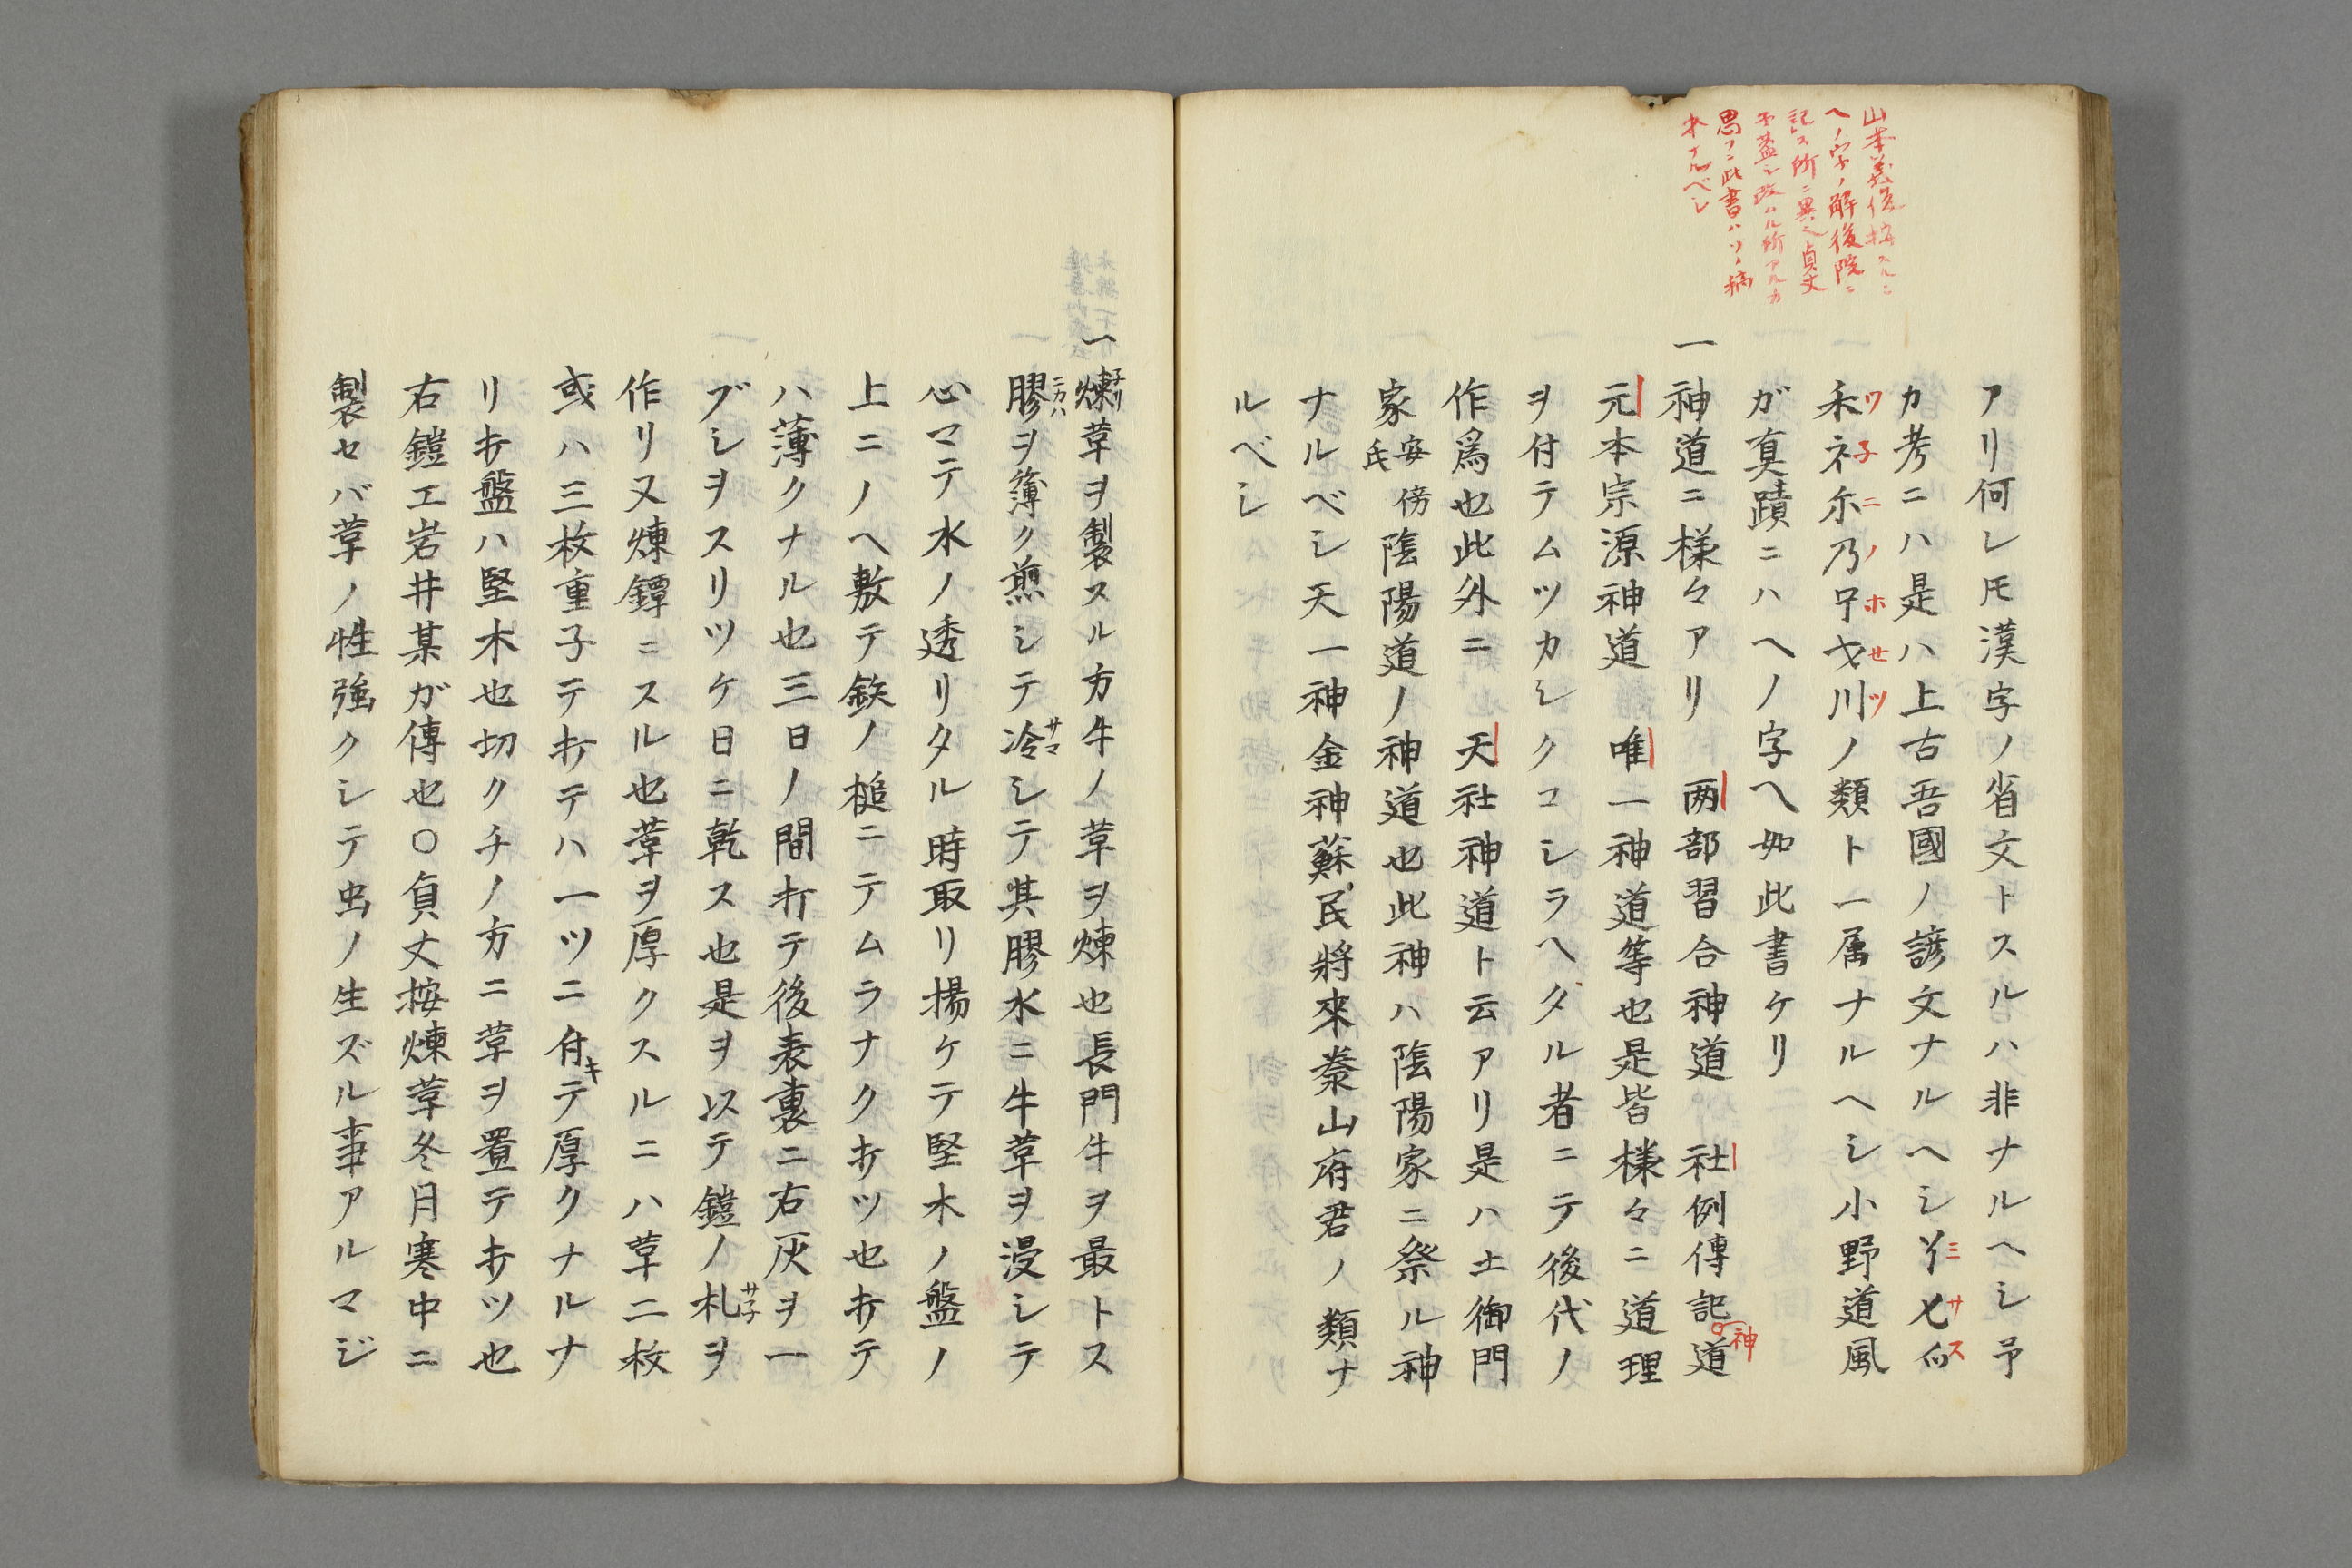 山本義俊按スルニ
ヘノ字ノ解後院ニ
記ス所ニ異也貞丈
蓋シ改ムル所アルカ
思フニ此書ハソノ稿
本ナルベシ
アリ何レモ漢字ノ省文トスルハ非ナルヘシ予
カ考ニハ是ハ上古吾國ノ諺文ナルヘシ
ノ類ト一属ナルヘシ小野道風
ワ子ニノホセツ
ミサス
ガ真蹟ニハヘノ字へ如此書ケリ
一神道ニ様々アリ 两部習合神道 社例傳記神道
元本宗源神道 唯一神道等也是皆様々ニ道理
ヲ付テムツカシクコシラヘタル者ニテ後代ノ
作爲也此外ニ 天社神道ト云アリ是ハ土御門
家安傍氏陰陽道ノ神道也此神ハ陰陽家ニ祭ル神
ナルベシ天一神金神蘇民將來泰山府君ノ類ナ
ルベシ
一煉革ヲ製スル方牛ノ革ヲ煉也長門牛ヲ最トス
子リ
膠ヲ簿ク煎シテ冷シテ其膠水ニ牛革ヲ浸シテ
ニカハ
サマ
心マテ水ノ透リタル時取リ揚ケテ堅木ノ盤ノ
上ニノヘ敷テ鉄ノ槌ニテムラナク打ツ也打テ
ハ薄クナル也三日ノ間打テ後表裏ニ右灰ヲ一
ブシヲスリツケ日ニ乾ス也是ヲ以テ鎧ノ札ヲ
サ子
作リ又煉鐔ニスル也革ヲ厚クスルニハ革二枚
或ハ三枚重子テ打テハ一ツニ付キテ厚クナルナ
リ打盤ハ堅木也切クチノ方ニ革ヲ置テ打ツ也
右鎧工岩井某が傳也〇貞丈按煉革冬月寒中ニ
製セバ革ノ性強クシテ虫ノ生ズル事アルマジ